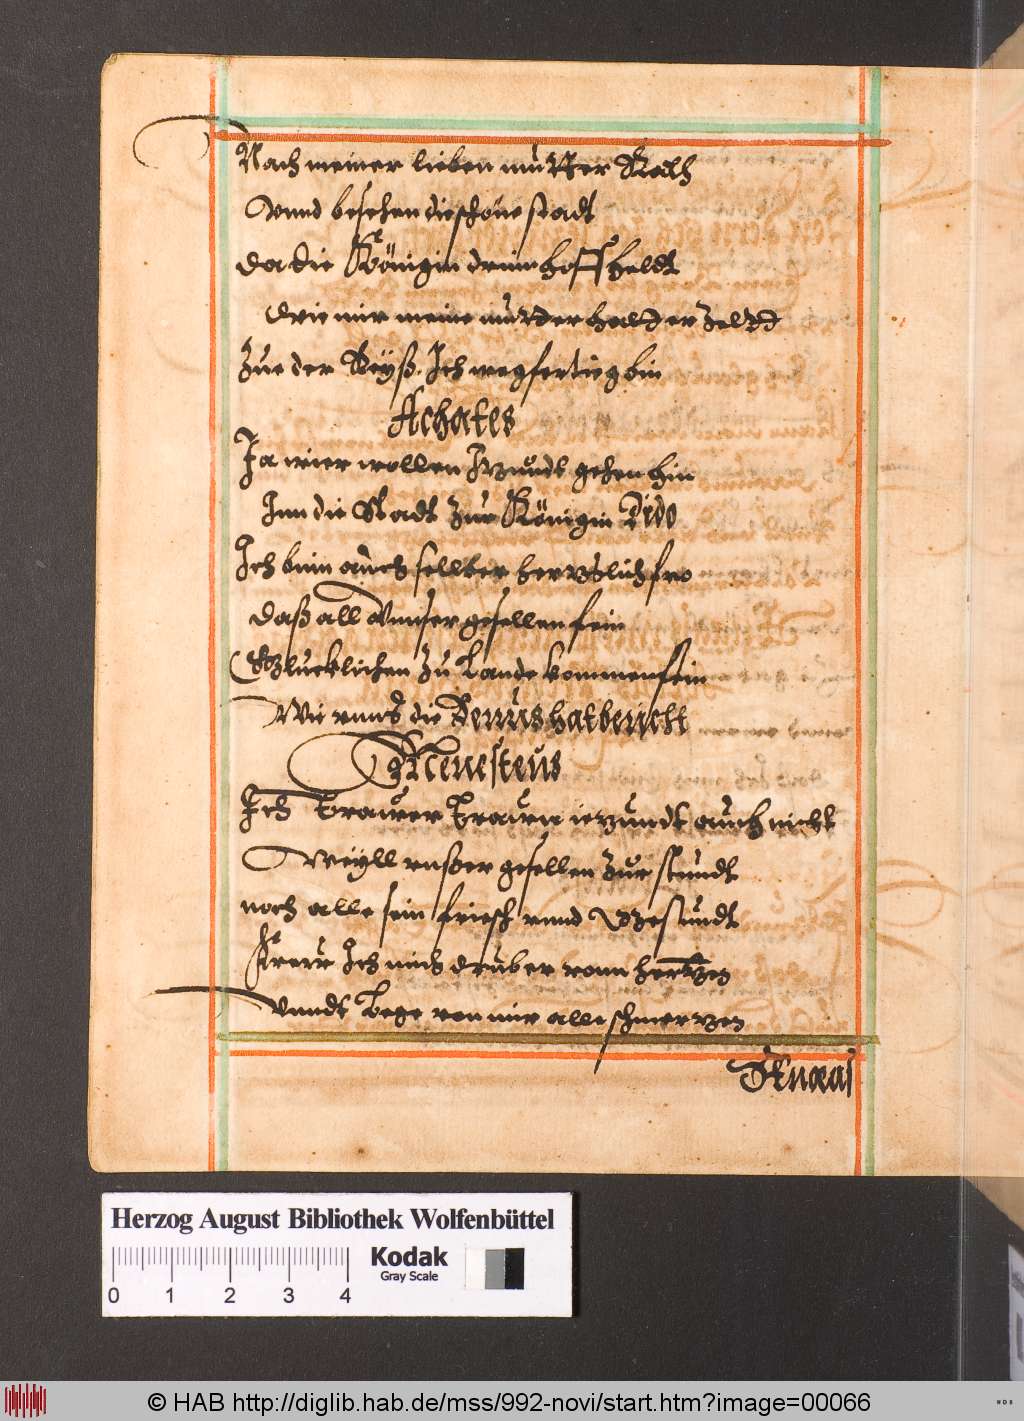 Nach meiner lieben mutter Rath
Vnnd besehen die schöne stadt
da die Königin drinn hoff heldt
wie mir meine mutter hatt erzeltt
Zue der Reyß. Ich wegfertieg bin
Achates
Ja wier wollen Itzundt gehen hin
Inn die Stadt zur Königin Dido
Ich binn auch sellber hertzlich fro
daß all Vnnser gesellen fein
Glucklichen zu Lande kommen sein
Wie vnns die Venus hat bericht
Menesteus
Ich Traurer Traun ietzundt auch nicht
Weyll vnßer gesellen zur stundt
noch alle sein friesch vnnd Gesundt
Frew Ich mich druber vonn hertzen
Vnndt Lege von mir alle schmertzen
Æneas
Herzog August Bibliothek Wolfenbüttel
Kodak
Gray Scale
0 1 2 3 4
© HAB http://diglib.hab.de/mss/992-novi/start.htm?image=00066